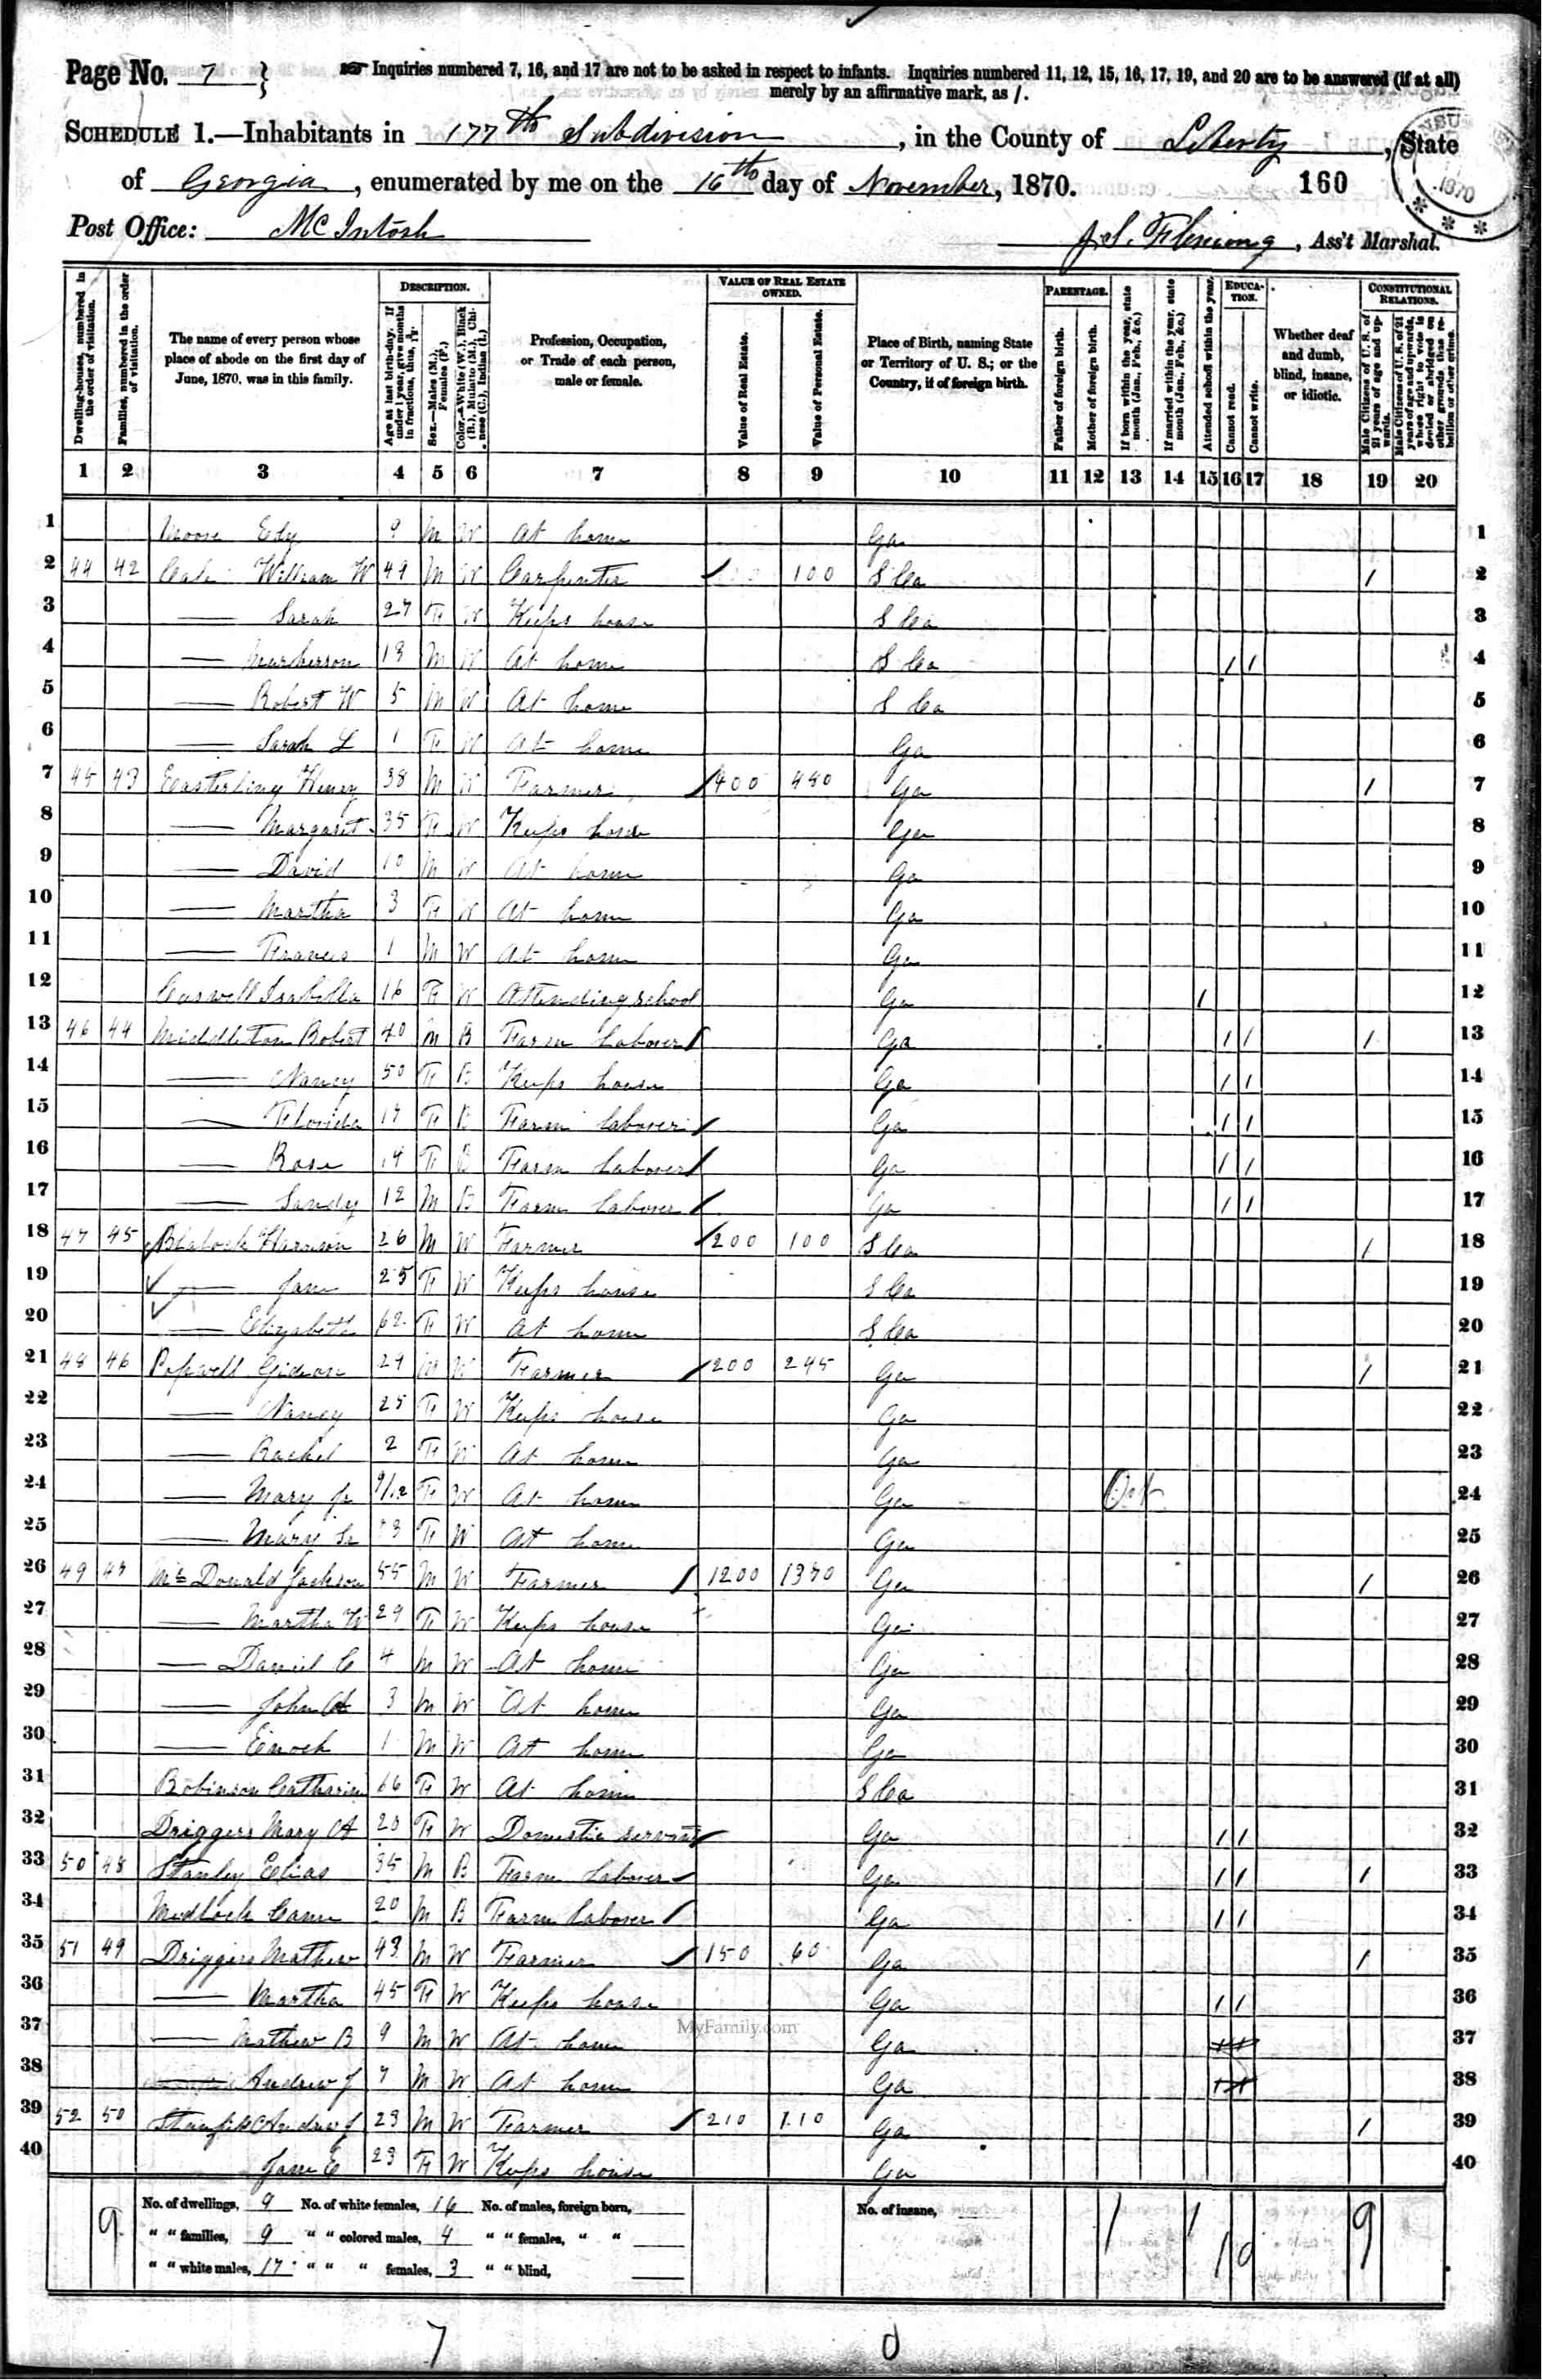 Page No. 7 } Inquiries numbered 7, 16, and 17 are not to be asked in respect to infants. Inquiries numbered 11, 12, 15, 16, 17, 19, and 20 are to be answered (if at all)
merely by an affirmative mark, as /.
SCHEDULE 1.—Inhabitants in 177th Subdivision, in the County of Liberty, State
of Georgia, enumerated by me on the 16th day of November, 1870. 160
Post Office: McIntosh J.S. Fleming, Ass't Marshal.
1870
Dwelling-houses, numbered in the order of visitation.
Families, numbered in the order of visitation.
The name of every person whose place of abode on the first day of June, 1870, was in this family.
DESCRIPTION.
Age at last birth-day. If under 1 year, give months in fractions, thus,
Sex.—Males (M.), Females (F.)
Color.—White (W.), Black (B.), Mulatto (M.), Chinese (C.), Indian (I.)
Profession, Occupation, or Trade of each person, male or female.
VALUE OF REAL ESTATE OWNED.
Value of Real Estate.
Value of Personal Estate.
Place of Birth, naming State or Territory of U. S.; or the Country, if of foreign birth.
PARENTAGE.
Father of foreign birth.
Mother of foreign birth.
If born within the year, state month (Jan., Feb., &c.)
If married within the year, state month (Jan., Feb., &c.)
EDUCATION.
Attended school within the year.
Cannot read.
Cannot write.
Whether deaf and dumb, blind, insane, or idiotic.
CONSTITUTIONAL RELATIONS.
Male Citizens of U. S. of 21 years of age and upwards.
Male Citizens of U. S. of 21 years of age and upwards, whose right to vote is denied or abridged on other grounds than rebellion or other crime.
1 2 3 4 5 6 7 8 9 10 11 12 13 14 15 16 17 18 19 20
1 Moore Edy 9 M W At home Ga 1
2 44 42 William W 49 M W Carpenter 100 S Ca / 2
3 — Sarah 27 F W Keeps house S Ca 3
4 — 13 M W At home S Ca / / 4
5 — Robert W 5 M W At home S Ca 5
6 — Sarah L 1 F W At home Ga 6
7 45 43 Easterling Henry 38 M W Farmer 400 480 Ga / 7
8 — Margaret 35 F W Keeps house Ga 8
9 — David 10 M W At home Ga 9
10 — Martha 3 F W At home Ga 10
11 — Francis 1 M W At home Ga 11
12 Caswell Isabella 16 F W Attending school Ga / 12
13 46 44 Middleton Robert 40 M B Farm Laborer Ga / / / 13
14 — Nancy 50 F B Keeps house Ga / / 14
15 — Florida 17 F B Farm laborer Ga / / 15
16 — Rose 14 F B Farm Laborer Ga / / 16
17 — Sandy 12 M B Farm Laborer Ga / / 17
18 47 45 Blalock Harrison 26 M W Farmer 200 100 S Ca / 18
19 — Jane 25 F W Keeps house S Ca 19
20 — Elizabeth 62 F W At home S Ca 20
21 48 46 Popwell Gideon 29 M W Farmer 200 245 Ga / 21
22 — Nancy 25 F W Keeps house Ga 22
23 — Rachel 2 F W At home Ga 23
24 — Mary Jr 9/12 F W At home Ga Oct 24
25 — Mary Sr F W At home Ga 25
26 49 47 McDonald Jackson 55 M W Farmer 1200 1370 Ga / 26
27 — Martha W 29 F W Keeps house Ga 27
28 — Daniel C 4 M W At home Ga 28
29 — John A 3 M W At home Ga 29
30 — Enoch 1 M W At home Ga 30
31 Robinson Catharine 66 F W At home S Ca 31
32 Driggers Mary A 20 F W Domestic servant Ga / / 32
33 50 48 Stanley Elias 35 M B Farm Laborer Ga / / / 33
34 Medlock 20 M B Farm Laborer Ga / / 34
35 51 49 Driggers Mathew 43 M W Farmer 150 60 Ga / 35
36 — Martha 45 F W Keeps house Ga / / 36
37 — Mathew B 9 M W At home Ga 37
38 — Andrew J 7 M W At home Ga 38
39 52 50 Andrew J 23 M W Farmer 210 110 Ga / 39
40 Jane E 23 F W Keeps house Ga 40
MyFamily.com
9 No. of dwellings, 9 No. of white females, 16 No. of males, foreign born, No. of insane, 1 1 9
" " families, 9 " " colored males, 4 " " females, " "
" " white males, 17 " " " females, 3 " " blind, 10
7 0